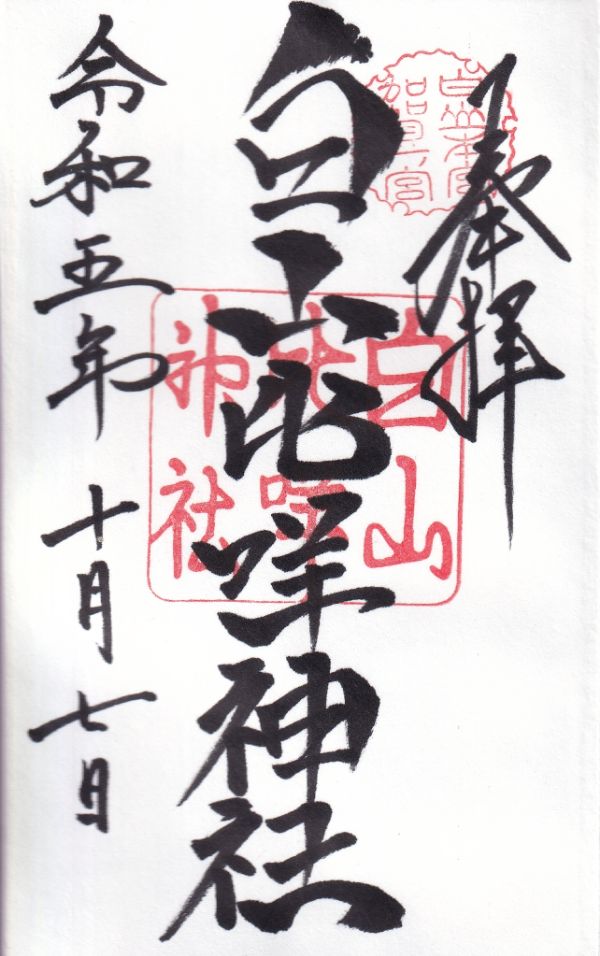 奉拝
白山本宮
加賀一宮
白山比咩神社
白山
比咩
神社
令和五年十月七日